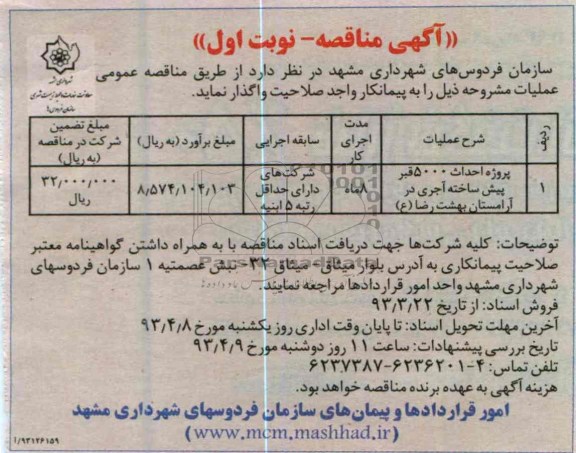 «آگهی مناقصه- نوبت اول»
سازمان فردوس‌های شهرداری مشهد در نظر دارد از طریق مناقصه عمومی
عملیات مشروحه ذیل را به پیمانکار واجد صلاحیت واگذار نماید.
ردیف | شرح عملیات | مدت اجرای کار | سابقه اجرایی | مبلغ برآورد (به ریال) | مبلغ تضمین شرکت در مناقصه (به ریال)
۱ | پروژه احداث ۵۰۰۰قبر پیش ساخته آجری در آرامستان بهشت رضا (ع) | ۸ماه | شرکت‌های دارای حداقل رتبه ۵ ابنیه | ۸٫۵۷۴٫۱۰۴٫۱۰۳ | ۳۲٫۰۰۰٫۰۰۰ ریال
توضیحات: کلیه شرکت‌ها جهت دریافت اسناد مناقصه با به همراه داشتن گواهینامه معتبر
صلاحیت پیمانکاری به آدرس بلوار میثاق - میثاق ۳۳- نبش عصمتیه ۱ سازمان فردوسهای
شهرداری مشهد واحد امور قراردادها مراجعه نمایند.
فروش اسناد: از تاریخ ۹۳٫۳٫۲۲
آخرین مهلت تحویل اسناد: تا پایان وقت اداری روز یکشنبه مورخ ۹۳٫۴٫۸
تاریخ بررسی پیشنهادات: ساعت ۱۱ روز دوشنبه مورخ ۹۳٫۴٫۹
تلفن تماس: ۴-۶۲۳۶۲۰۱-۶۲۳۷۳۸۷
هزینه آگهی به عهده برنده مناقصه خواهد بود.
امور قراردادها و پیمان‌های سازمان فردوسهای شهرداری مشهد
(www.mcm.mashhad.ir)
۱/۹۳۱۲۶۱۵۹